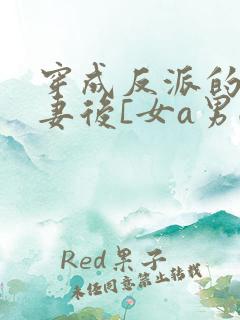 穿成反派的
妻後[女a男
Red果子
未经同意禁止转载